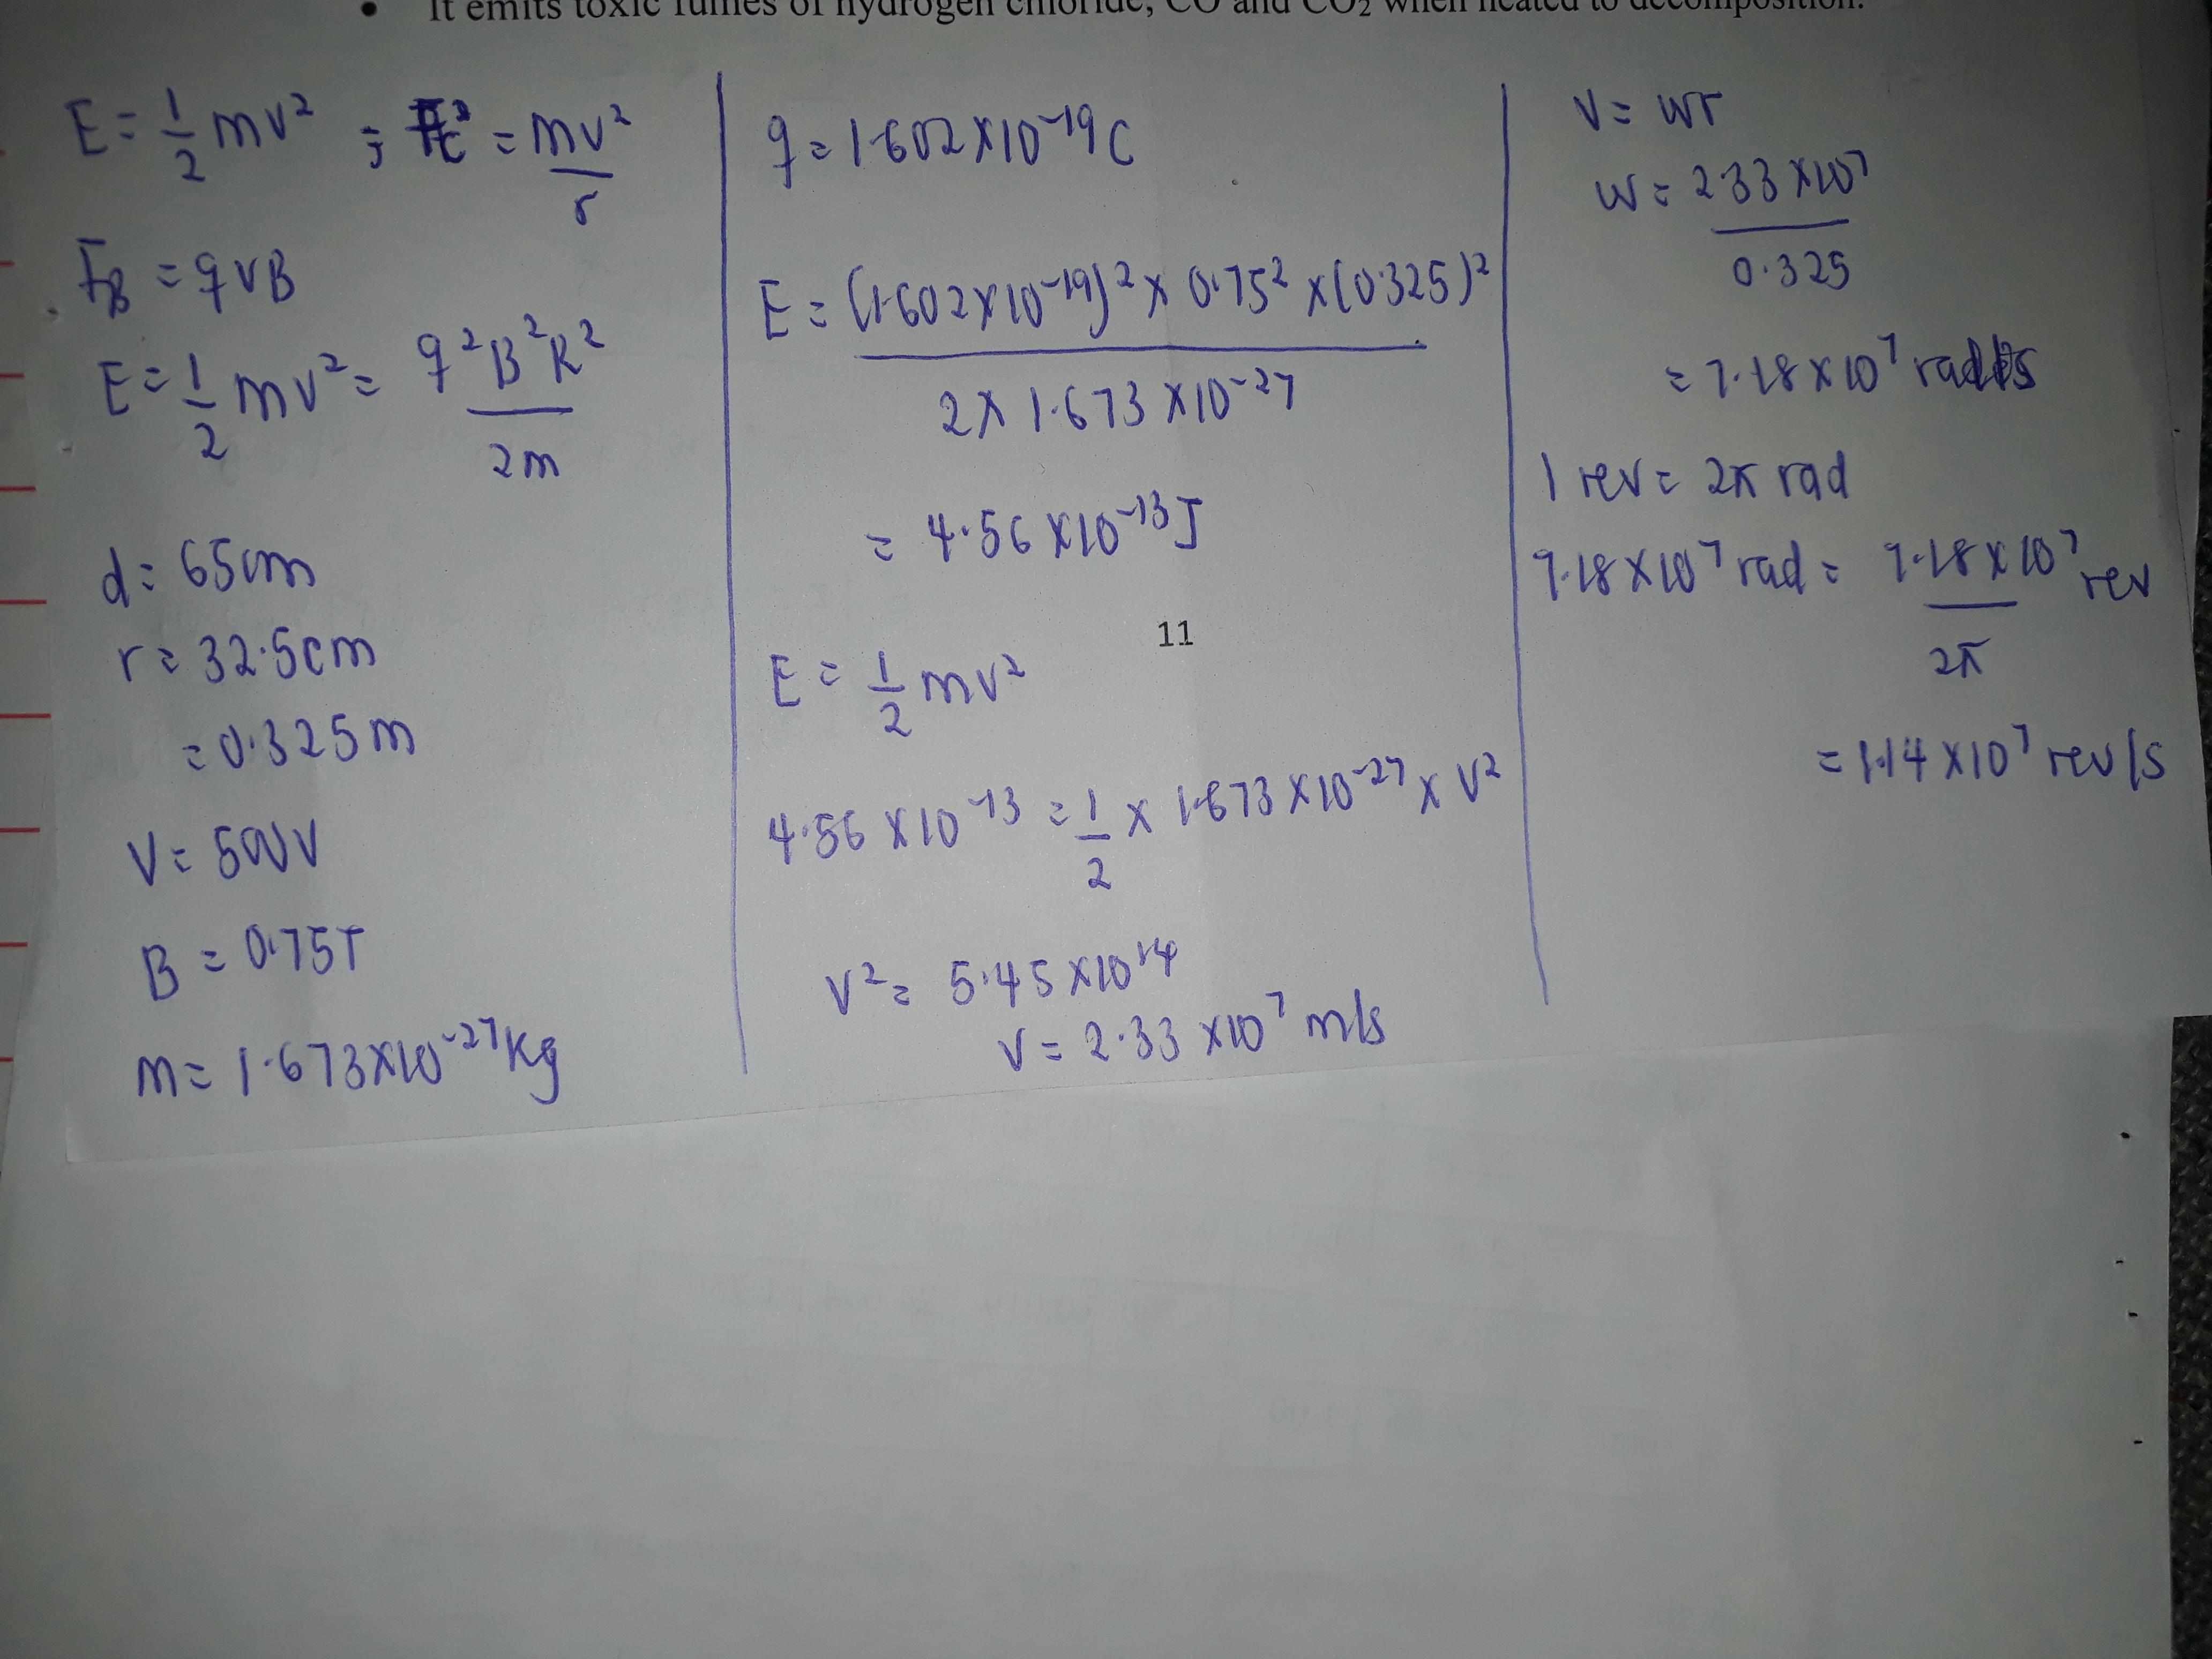 • It emits toxic fumes of hydrogen chloride, CO and CO₂ when heated to decomposition.
E = 1/2 mv² ; = mv²/r
F_B = qvB
E = 1/2 mv² = q²B²R²/2m
d = 65cm
r = 32.5cm
= 0.325m
V = 500V
B = 0.75T
m = 1.673×10⁻²⁷kg
q = 1.602×10⁻¹⁹C
E = (1.602×10⁻¹⁹)² × 0.75² × (0.325)²
2 × 1.673 × 10⁻²⁷
= 4.56 × 10⁻¹³J
11
E = 1/2 mv²
4.56 × 10⁻¹³ = 1/2 × 1.673 × 10⁻²⁷ × V²
V² = 5.45 × 10¹⁴
V = 2.33 × 10⁷ m/s
V = wr
w = 2.33 × 10⁷
0.325
= 7.18 × 10⁷ rad/s
1 rev = 2π rad
7.18 × 10⁷ rad = 7.18 × 10⁷/2π rev
= 1.14 × 10⁷ rev/s